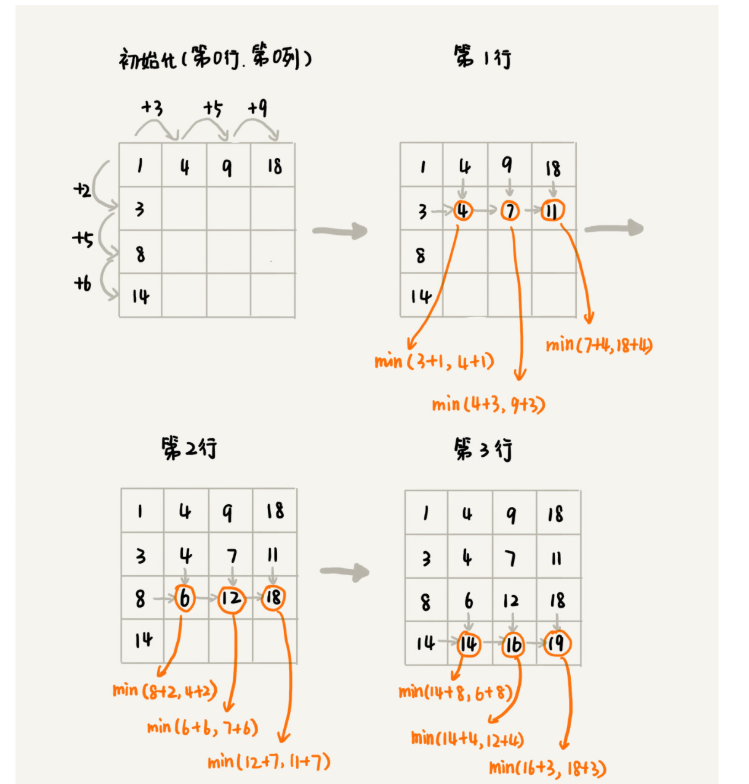 初始化(第0行.第0列)
第1行
+3 +5 +9
1 4 9 18
+2
3
+5
8
+6
14
1 4 9 18
3 4 7 11
8
14
min(3+1, 4+1)
min(7+4, 18+4)
min(4+3, 9+3)
第2行
第3行
1 4 9 18
3 4 7 11
8 6 12 18
14
min(8+2, 4+2)
min(6+6, 7+6)
min(12+7, 11+7)
1 4 9 18
3 4 7 11
8 6 12 18
14 14 16 19
min(14+8, 6+8)
min(14+4, 12+4)
min(16+3, 18+3)